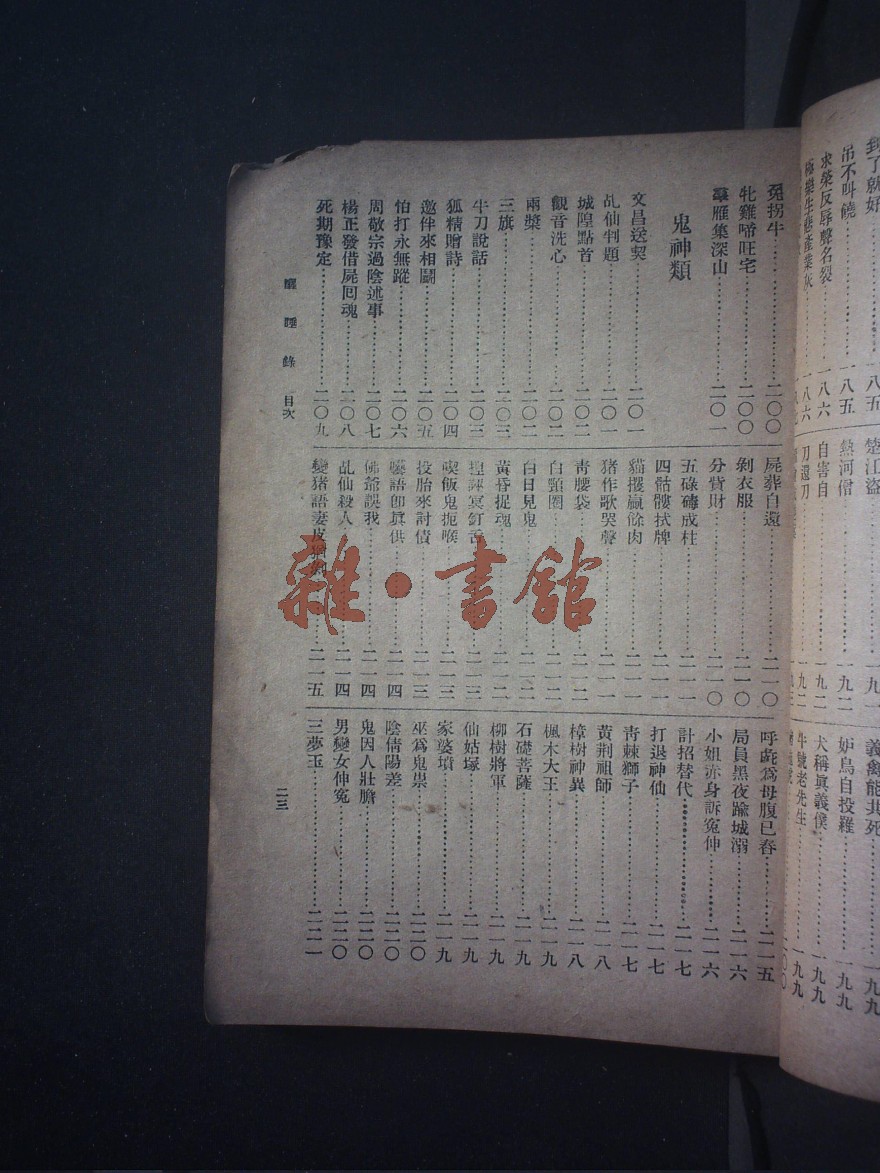 到了就好……八五
吊不叫饒……一八五
求榮反辱聲名裂……一八六
楚江盜
熱河僧……一九二
自害自……一九二
刀還刀
義禽能共死……一九九
妒鳥自投羅……一九九
犬稱眞義僕……一九九
牛號老先生……一九九
冤拐牛……二〇〇
牝雞啼旺宅……二〇〇
羣雁集深山……二〇一
鬼神類
文昌送契……二〇一
乩仙判題……二〇一
城隍點首……二〇二
觀音洗心……二〇二
兩槳……二〇二
三旗……二〇三
牛刀說話……二〇三
狐精贈詩……二〇四
邀伴來相鬪……二〇五
怕打永無蹤……二〇六
周敬宗過陰述事……二〇七
楊正發借屍囘魂……二〇八
死期豫定……二〇九
屍葬自還……二一〇
剝衣服……二一〇
分貲財……二一〇
五碌磚成柱……二一一
四骷髏拭牌……二一一
貓攫贏餘肉……二一一
豬作歌哭聲……二一一
靑腰袋……二一二
白頸圈……二一二
白日見鬼……二一二
黃昏捉魂……二一二
誣冥釘舌……二一三
喫飯鬼扼喉……二一三
投胎來討債……二一三
囈語卽眞供……二一四
佛爺誤我……二一四
乩仙殺人……二一四
變豬語妻皮……二一五
呼庛爲母腹已舂……二一五
局員黑夜踰城溺……二一六
小姐赤身訴寃伸……二一六
計招替代……二一七
打退神仙……二一七
靑棘獅子……二一七
黃荆祖師……二一八
樟樹神異……二一八
楓木大王……二一九
石礎菩薩……二一九
柳樹將軍……二一九
仙姑塚……二一九
家婆墳……二一九
巫爲鬼祟……二二〇
陰倩陽差……二二〇
鬼因人壯膽……二二〇
男變女伸寃……二二〇
三夢玉……二二一
睡錄 目次
二三
雜·書館